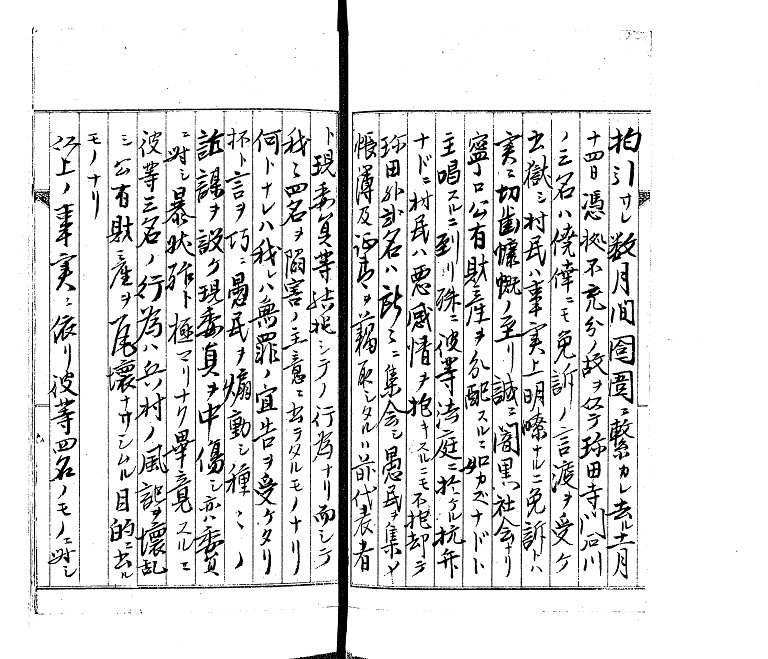 拘引サレ数月间囹圄ニ繋カレ去ル十一月
十四日憑拠不充分ノ故ヲ以テ珎田寺门石川
ノ三名ハ僥倖ニモ免訴ノ言渡ヲ受ケ
出獄シ村民ハ事実上明瞭ナルニ免訴トハ
実ニ切歯慷慨ノ至リ誠ニ闇黒社会ナリ
寧ロ公有財産ヲ分配スルニ如カズナドト
主唱スルニ到リ殊ニ彼等法庭ニ於ケル抗弁
ナドニ村民ハ悪感情ヲ抱キスルニモ不抱却テ
珎田外弐名ハ所々ニ集会シ愚民ヲ集メ
帳簿及証書ヲ藉取シタルハ前代表者
ト現委員等結託シテノ行為ナリ而シテ
我々四名ヲ陥害ノ主意ニ出ラタルモノナリ
何トナレハ我レハ無罪ノ宣告ヲ受ケタリ
抔ト言ヲ巧ニ愚民ヲ煽動シ種々ノ
詐謀ヲ設ケ現委員ヲ中傷シ亦ハ委員
ニ対シ暴状殆ト極マリナク畢竟スルニ
彼等三名ノ行為ハ兵村ノ風記ヲ壊乱
シ公有財産ヲ瓦壊ナサシムル目的ニ出ル
モノナリ
以上ノ事実ニ依リ彼等四名ノモノニ対シ